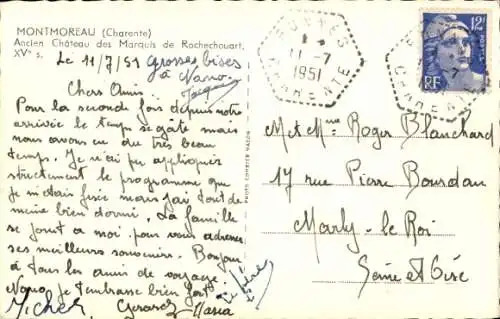 MONTMOREAU (Charente)
Ancien Château des Marquis de Rochechouart,
XVe s.
Le 11/7/51
grosses bises
à Nano
Jacques
Chers Amis.
Pour la seconde fois depuis notre
arrivée le temps se gâte mais
nous avons eu du très beau
temps. Je n'ai pu appliquer
strictement le programme que
je m'étais fixé mais j'ai tout de
même bien dormi. La famille
se joint à moi pour vous adresser
ses meilleurs souvenirs. Bonjour
à tous les amis de voyage.
Nano, je t'embrasse bien fort.
Michel
Gérard
Maria
11 -7
1951
CHARENTE
12F
RF
CHARENTE
M et Mme Roger Blanchard
17 rue Pierre Bourdan
Marly-le Roi
Seine et Oise